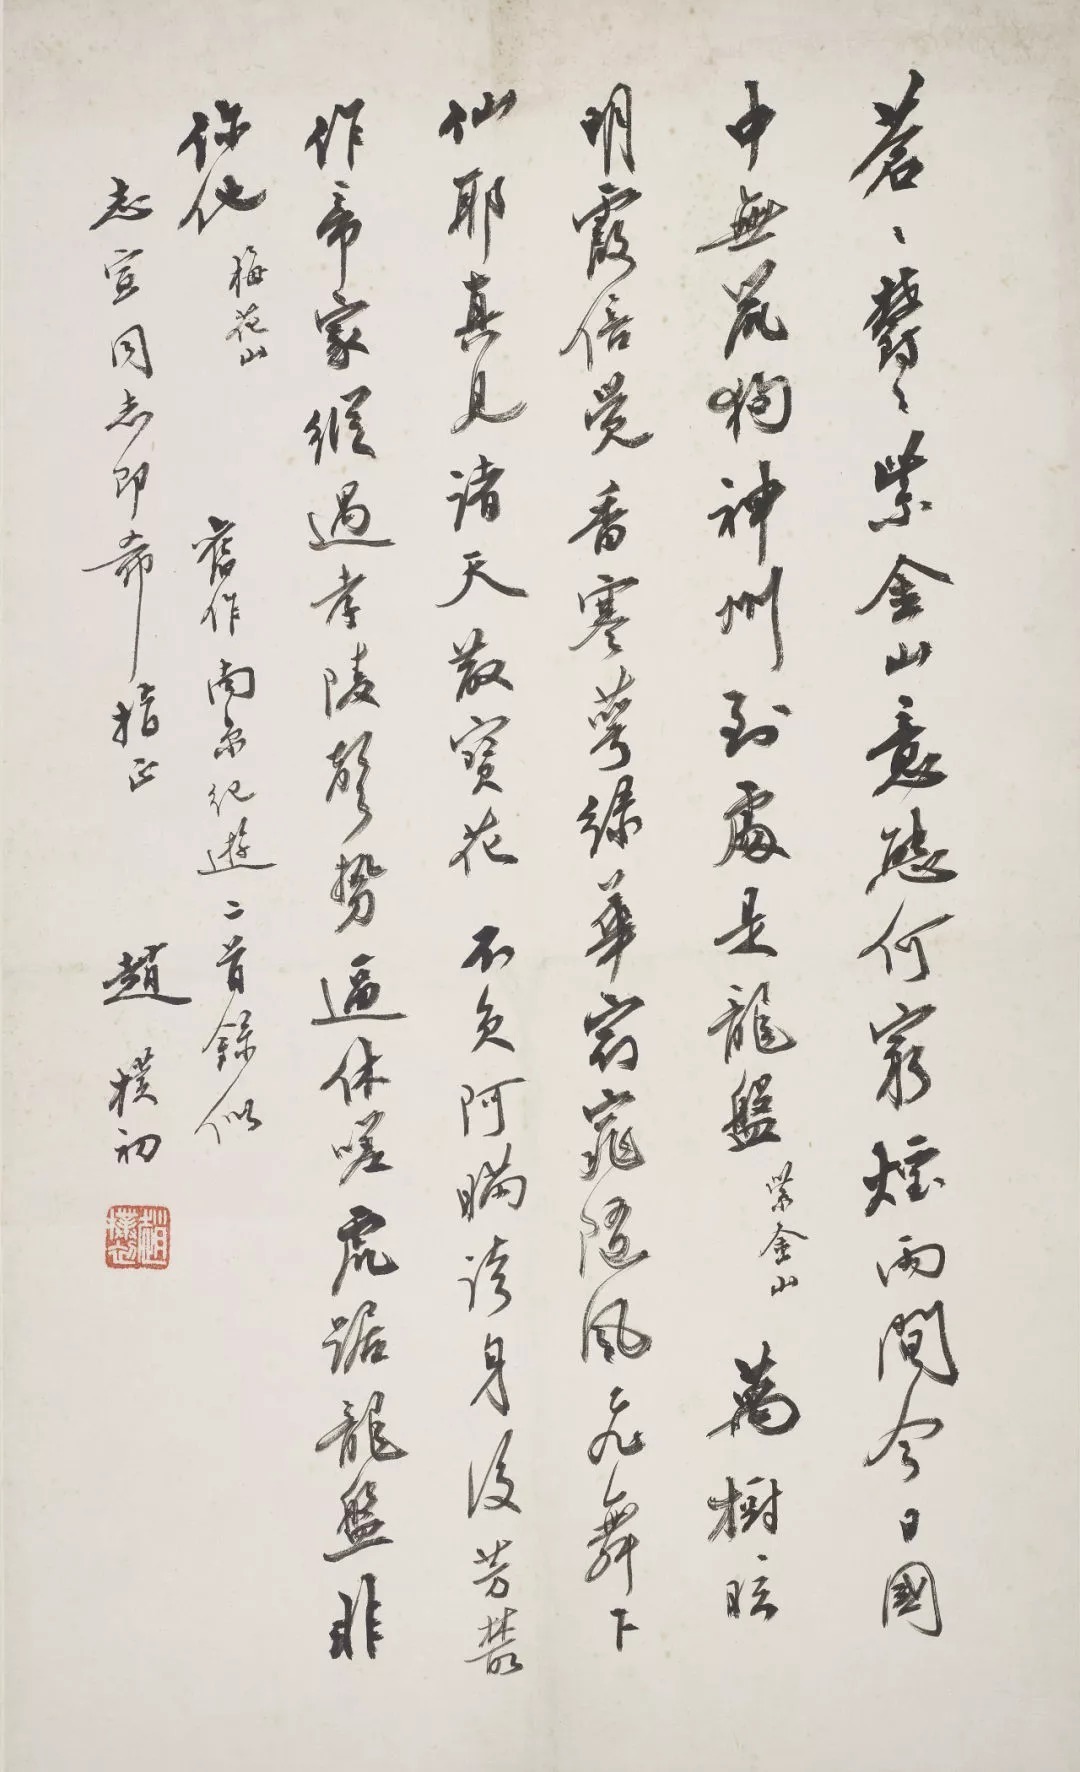 蒼〻鬱〻紫金山意態何窮煙雨間今日國
中無鼠狗神州到處是龍盤 紫金山 萬樹眩
明霞倍覺香寒萼綠華窈窕隨風飛舞下
仙耶真見諸天散寶花 不負阿瞞誇身後芳叢
作帝家縱過孝陵聲勢逼休嗟虎踞龍盤非
你他 梅花山 舊作南京紀遊二首錄似
志宣同志即希指正 趙樸初
趙樸初